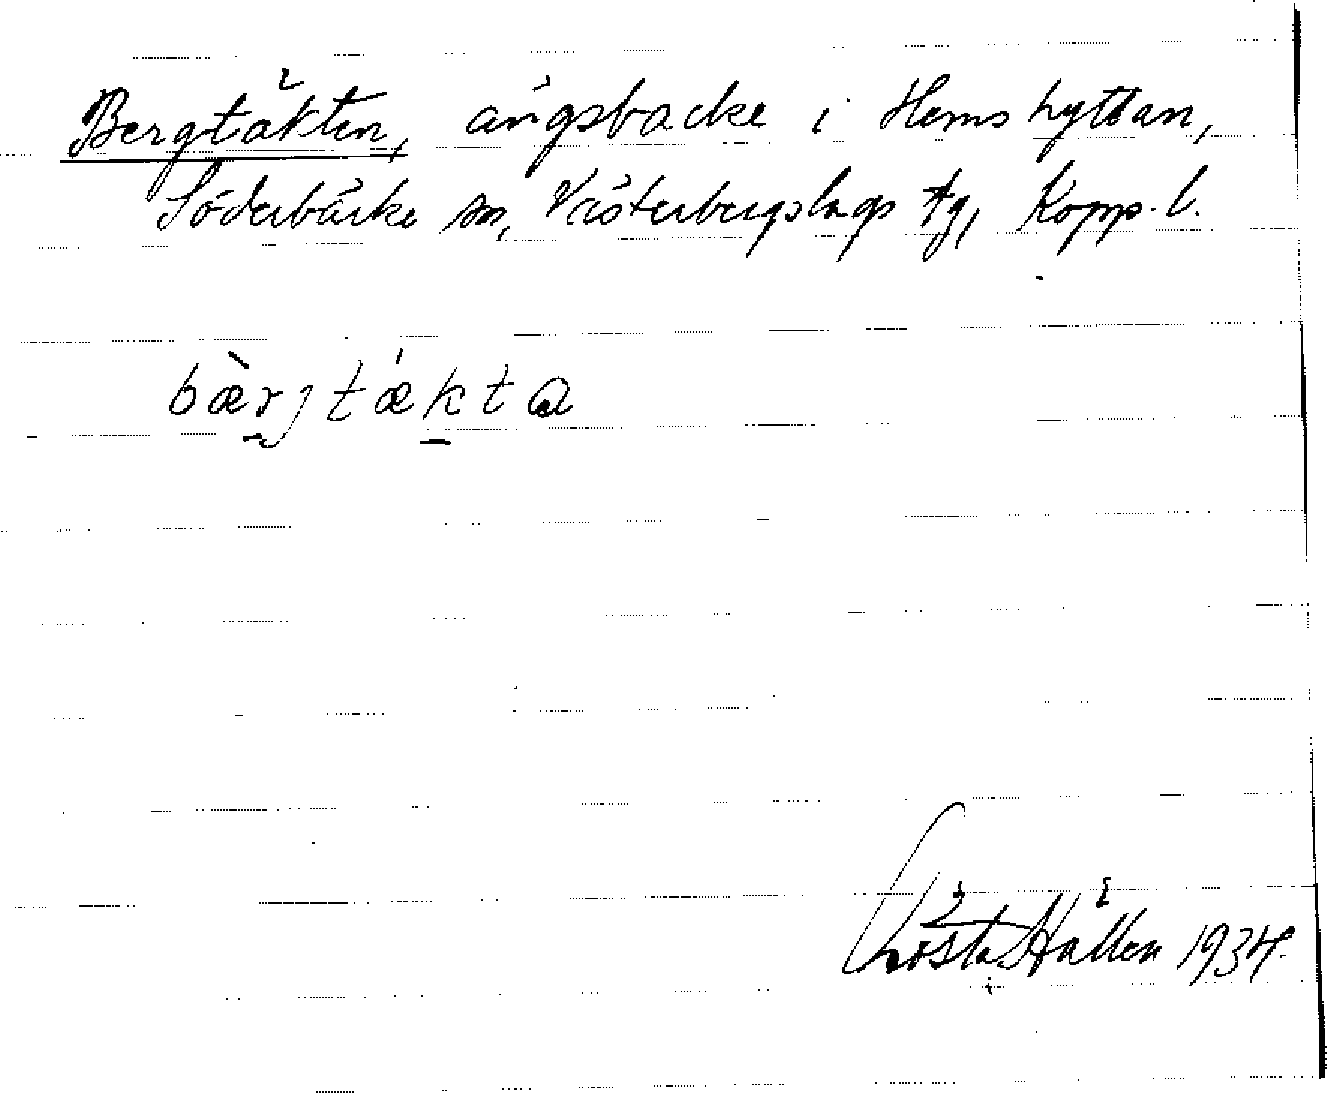 Bergtäkten, ängsbacke i Hemshyttan,
Söderbärke sn, Västerbergslags tg, Kopp. l.
bæ̀rjtækta
Gösta Hallén 1934.